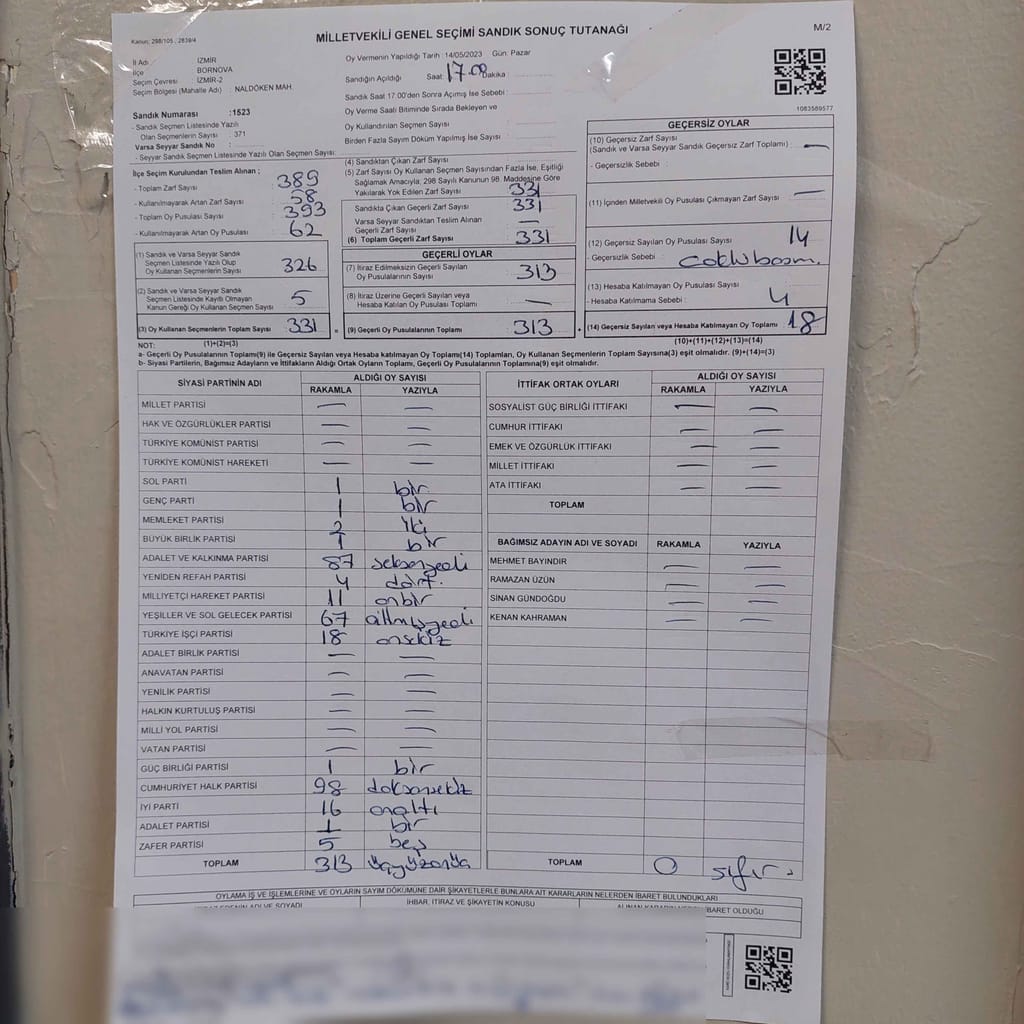 Kanun: 298/105 ; 2839/4
MİLLETVEKİLİ GENEL SEÇİMİ SANDIK SONUÇ TUTANAĞI
M/2
İl Adı : İZMİR
İlçe BORNOVA
Seçim Çevresi : İZMİR-2
Seçim Bölgesi (Mahalle Adı) : NALDÖKEN MAH.
Sandık Numarası :1523
- Sandık Seçmen Listesinde Yazılı
Olan Seçmenlerin Sayısı : 371
Varsa Seyyar Sandık No :
- Seyyar Sandık Seçmen Listesinde Yazılı Olan Seçmen Sayısı:
Oy Vermenin Yapıldığı Tarih : 14/05/2023 Gün: Pazar
Sandığın Açıldığı Saat: 17.00 Dakika :
Sandık Saat 17:00'den Sonra Açımış İse Sebebi :
Oy Verme Saati Bitiminde Sırada Bekleyen ve
Oy Kullandırılan Seçmen Sayısı :
Birden Fazla Sayım Döküm Yapılmış İse Sayısı :
1083589577
İlçe Seçim Kurulundan Teslim Alınan :
- Toplam Zarf Sayısı : 389
- Kullanılmayarak Artan Zarf Sayısı : 58
- Toplam Oy Pusulası Sayısı : 393
- Kullanılmayarak Artan Oy Pusulası : 62
(1) Sandık ve Varsa Seyyar Sandık
Seçmen Listesinde Yazılı Olup
Oy Kullanan Seçmenlerin Sayısı 326
(2) Sandık ve Varsa Seyyar Sandık
Seçmen Listesinde Kayıtlı Olmayan
Kanun Gereği Oy Kullanan Seçmen Sayısı 5
(3) Oy Kullanan Seçmenlerin Toplam Sayısı 331 =
(1)+(2)=(3)
(4) Sandıktan Çıkan Zarf Sayısı
(5) Zarf Sayısı Oy Kullanan Seçmen Sayısından Fazla İse, Eşitliği
Sağlamak Amacıyla, 298 Sayılı Kanunun 98. Maddesine Göre
Yakılarak Yok Edilen Zarf Sayısı 331
Sandıkta Çıkan Geçerli Zarf Sayısı 331
Varsa Seyyar Sandıktan Teslim Alınan
Geçerli Zarf Sayısı —
(6) Toplam Geçerli Zarf Sayısı 331
GEÇERLİ OYLAR
(7) İtiraz Edilmeksizin Geçerli Sayılan
Oy Pusulalarının Sayısı 313
(8) İtiraz Üzerine Geçerli Sayılan veya
Hesaba Katılan Oy Pusulası Toplamı —
(9) Geçerli Oy Pusulalarının Toplamı 313 +
GEÇERSİZ OYLAR
(10) Geçersiz Zarf Sayısı
(Sandık ve Varsa Seyyar Sandık Geçersiz Zarf Toplamı) : —
- Geçersizlik Sebebi :
(11) İçinden Milletvekili Oy Pusulası Çıkmayan Zarf Sayısı —
(12) Geçersiz Sayılan Oy Pusulası Sayısı 14
- Geçersizlik Sebebi :
(13) Hesaba Katılmayan Oy Pusulası Sayısı
- Hesaba Katılmama Sebebi : 4
(14) Geçersiz Sayılan veya Hesaba Katılmayan Oy Toplamı 18
(10)+(11)+(12)+(13)=(14)
NOT:
a- Geçerli Oy Pusulalarının Toplamı(9) ile Geçersiz Sayılan veya Hesaba katılmayan Oy Toplamı(14) Toplamları, Oy Kullanan Seçmenlerin Toplam Sayısına(3) eşit olmalıdır. (9)+(14)=(3)
b- Siyasi Partilerin, Bağımsız Adayların ve İttifakların Aldığı Ortak Oyların Toplamı, Geçerli Oy Pusulalarının Toplamına(9) eşit olmalıdır.
SİYASİ PARTİNİN ADI ALDIĞI OY SAYISI
RAKAMLA YAZIYLA
MİLLET PARTİSİ — —
HAK VE ÖZGÜRLÜKLER PARTİSİ — —
TÜRKİYE KOMÜNİST PARTİSİ — —
TÜRKİYE KOMÜNİST HAREKETİ — —
SOL PARTİ 1 bir
GENÇ PARTİ 1 bir
MEMLEKET PARTİSİ 2 iki
BÜYÜK BİRLİK PARTİSİ 1 bir
ADALET VE KALKINMA PARTİSİ 87 seksenyedi
YENİDEN REFAH PARTİSİ 4 dört.
MİLLİYETÇİ HAREKET PARTİSİ 11 onbir
YEŞİLLER VE SOL GELECEK PARTİSİ 67 altmışyedi
TÜRKİYE İŞÇİ PARTİSİ 18 onsekiz
ADALET BİRLİK PARTİSİ — —
ANAVATAN PARTİSİ — —
YENİLİK PARTİSİ — —
HALKIN KURTULUŞ PARTİSİ — —
MİLLİ YOL PARTİSİ — —
VATAN PARTİSİ — —
GÜÇ BİRLİĞİ PARTİSİ 1 bir
CUMHURİYET HALK PARTİSİ 98 doksansekiz
İYİ PARTİ 16 onaltı
ADALET PARTİSİ 1 bir
ZAFER PARTİSİ 5 beş
TOPLAM 313 üçyüzonüç
İTTİFAK ORTAK OYLARI ALDIĞI OY SAYISI
RAKAMLA YAZIYLA
SOSYALİST GÜÇ BİRLİĞİ İTTİFAKI — —
CUMHUR İTTİFAKI — —
EMEK VE ÖZGÜRLÜK İTTİFAKI — —
MİLLET İTTİFAKI — —
ATA İTTİFAKI — —
TOPLAM
BAĞIMSIZ ADAYIN ADI VE SOYADI RAKAMLA YAZIYLA
MEHMET BAYINDIR — —
RAMAZAN ÜZÜN — —
SİNAN GÜNDOĞDU — —
KENAN KAHRAMAN — —
TOPLAM 0 sıfır.
OYLAMA İŞ VE İŞLEMLERİNE VE OYLARIN SAYIM DÖKÜMÜNE DAİR ŞİKAYETLERLE BUNLARA AİT KARARLARIN NELERDEN İBARET BULUNDUKLARI
ADI VE SOYADI İHBAR, İTİRAZ VE ŞİKAYETİN KONUSU İBARET OLDUĞU